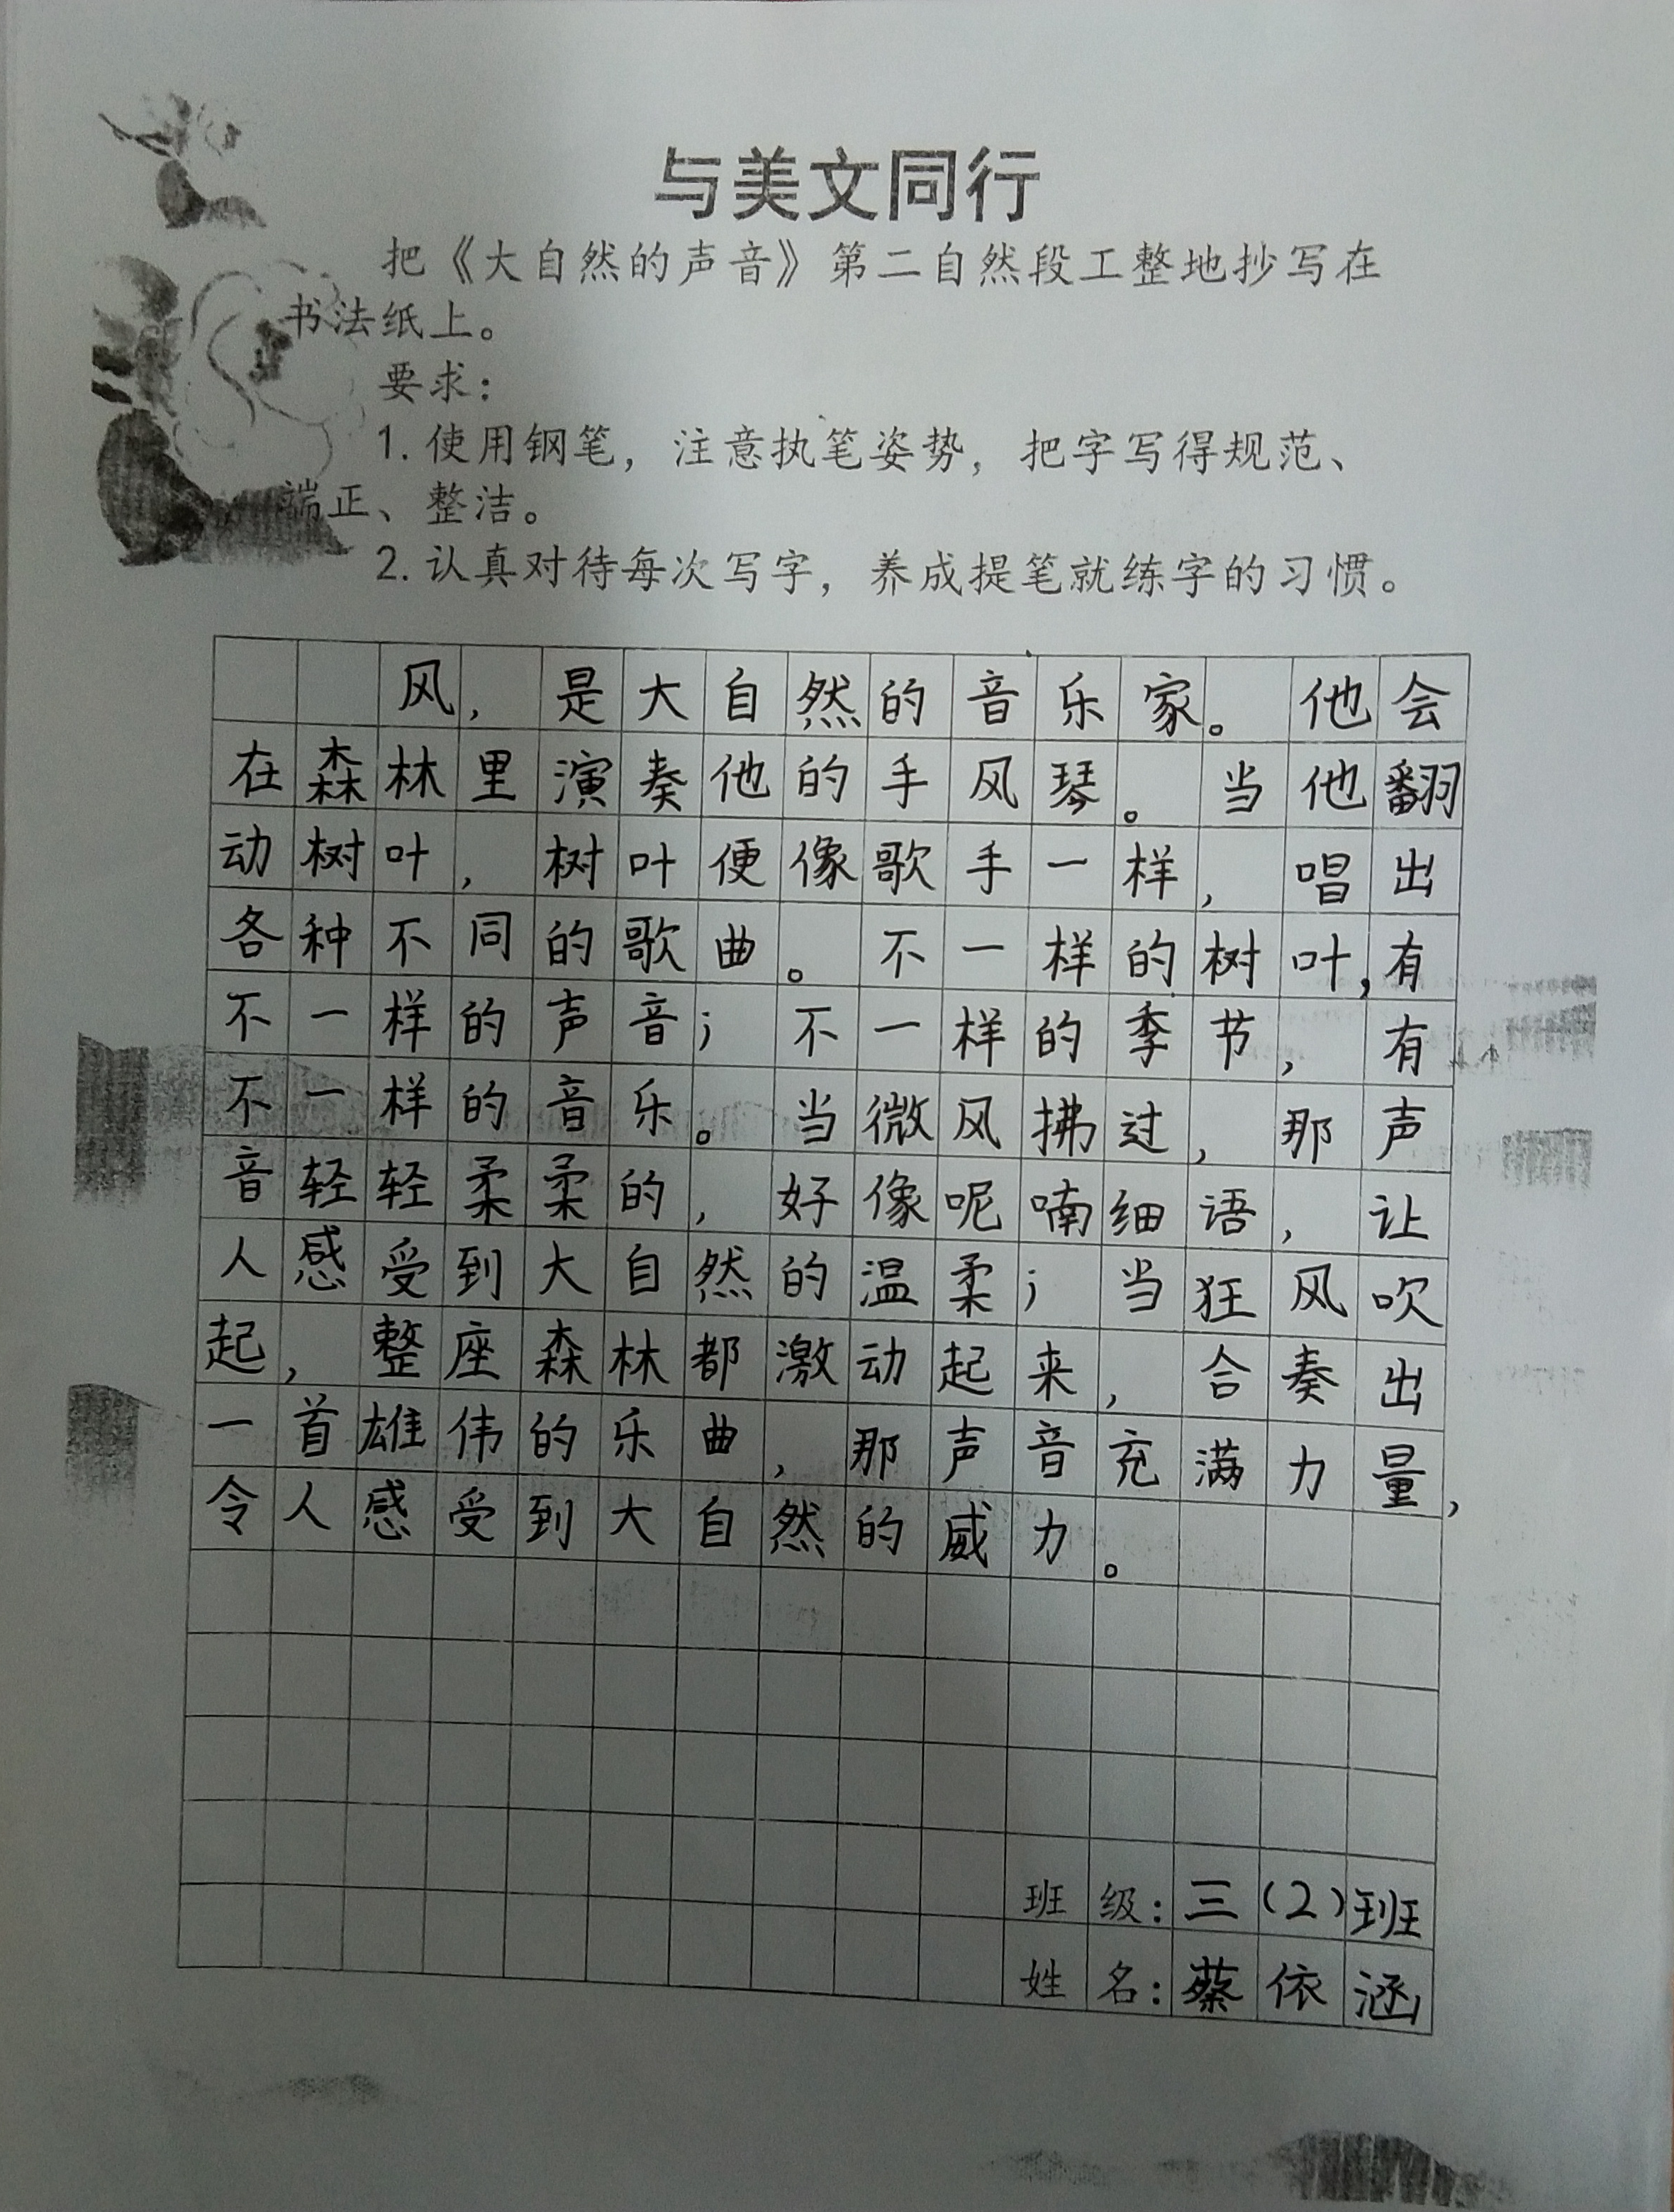 与美文同行
把《大自然的声音》第二自然段工整地抄写在
书法纸上。
要求：
1. 使用钢笔，注意执笔姿势，把字写得规范、
端正、整洁。
2. 认真对待每次写字，养成提笔就练字的习惯。
风，是大自然的音乐家。他会
在森林里演奏他的手风琴。当他翻
动树叶，树叶便像歌手一样，唱出
各种不同的歌曲。不一样的树叶，有
不一样的声音；不一样的季节，有
不一样的音乐。当微风拂过，那声
音轻轻柔柔的，好像呢喃细语，让
人感受到大自然的温柔；当狂风吹
起，整座森林都激动起来，合奏出
一首雄伟的乐曲，那声音充满力量，
令人感受到大自然的威力。
班级：三（2）班
姓名：蔡依涵